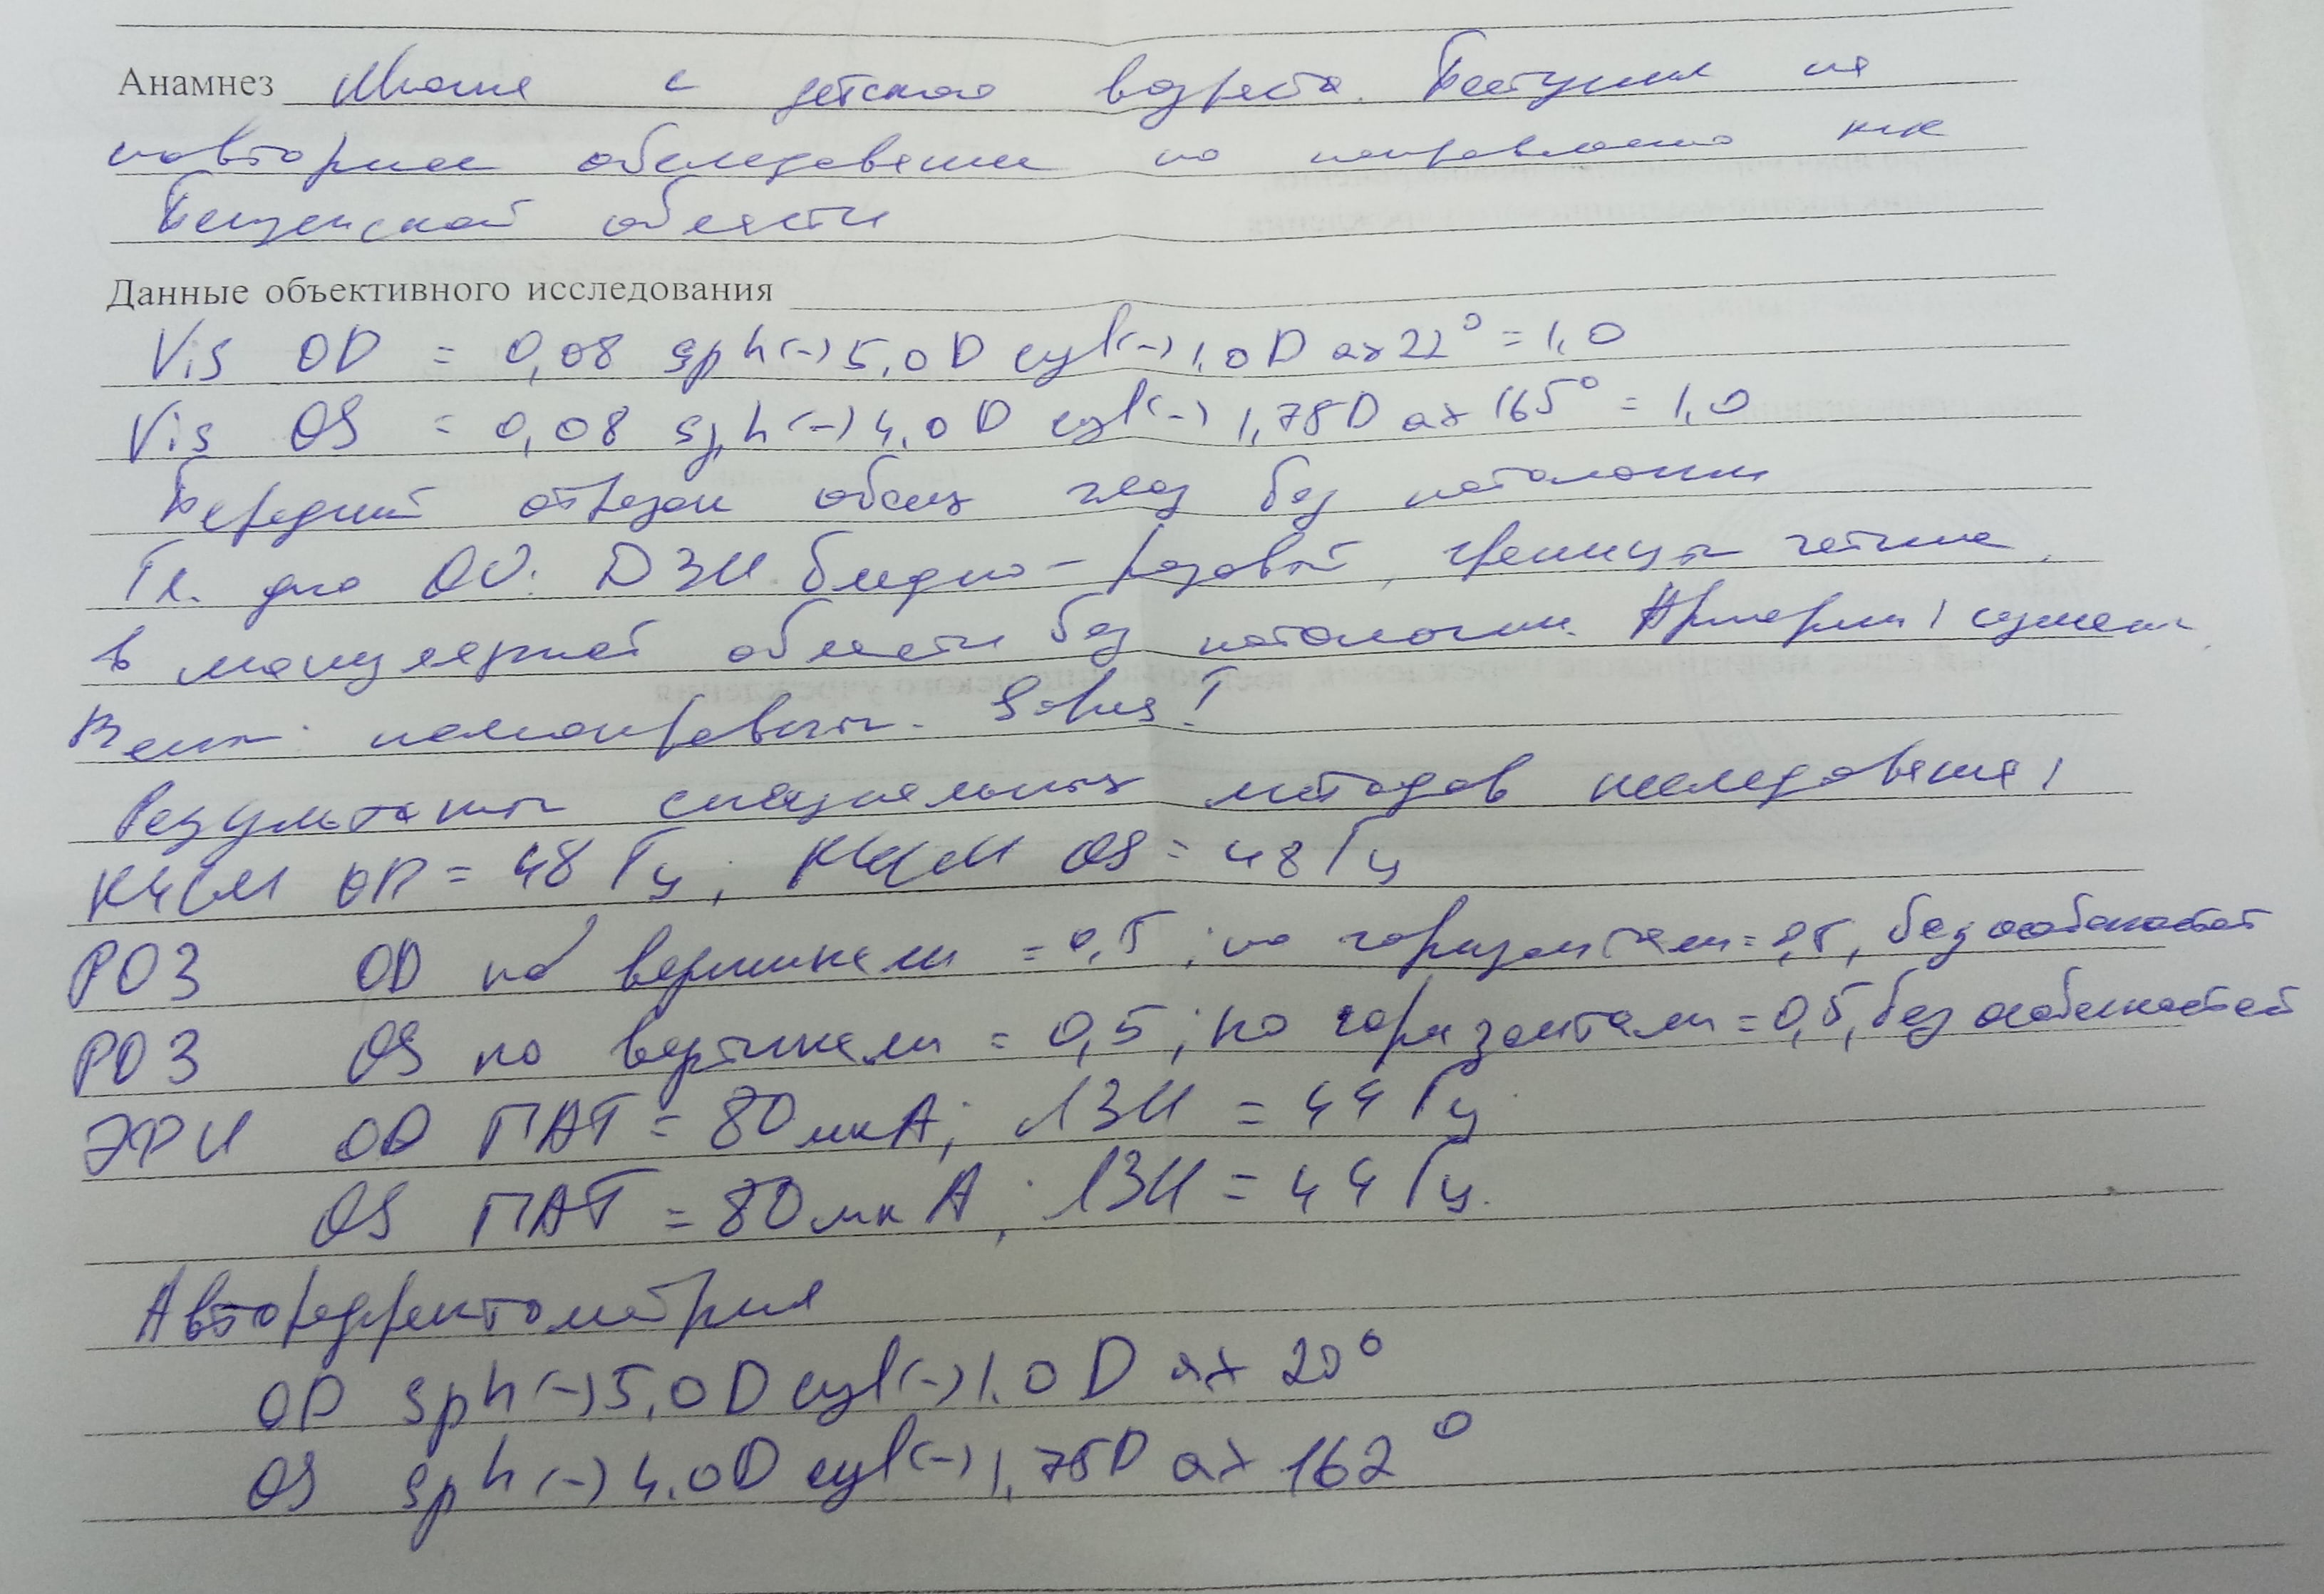 Анамнез Миопия с детского возраста. Поступил на
повторное обследование по направлению ВКК
Пензенской области
Данные объективного исследования
Vis OD = 0,08 sph(-)5,0D cyl(-)1,0D ax 22° = 1,0
Vis OS = 0,08 sph(-)4,0D cyl(-)1,75D ax 165° = 1,0
Передний отрезок обоих глаз без патологии
Гл. дно OU: ДЗН бледно-розовый, границы четкие,
в макулярной области без патологии. Артерии сужены
Вены полнокровны.
Результаты специальных методов исследования:
КЧСМ OD = 48 Гц; КЧСМ OS = 48 Гц
РОЗ OD по вертикали = 0,5; по горизонтали = 0,5, без особенностей
РОЗ OS по вертикали = 0,5; по горизонтали = 0,5, без особенностей
ЭФИ OD ПАТ = 80 мкА; ЛЗН = 44 Гц
OS ПАТ = 80 мкА; ЛЗН = 44 Гц.
Авторефрактометрия
OD sph(-)5,0D cyl(-)1,0D ax 20°
OS sph(-)4,0D cyl(-)1,75D ax 162°